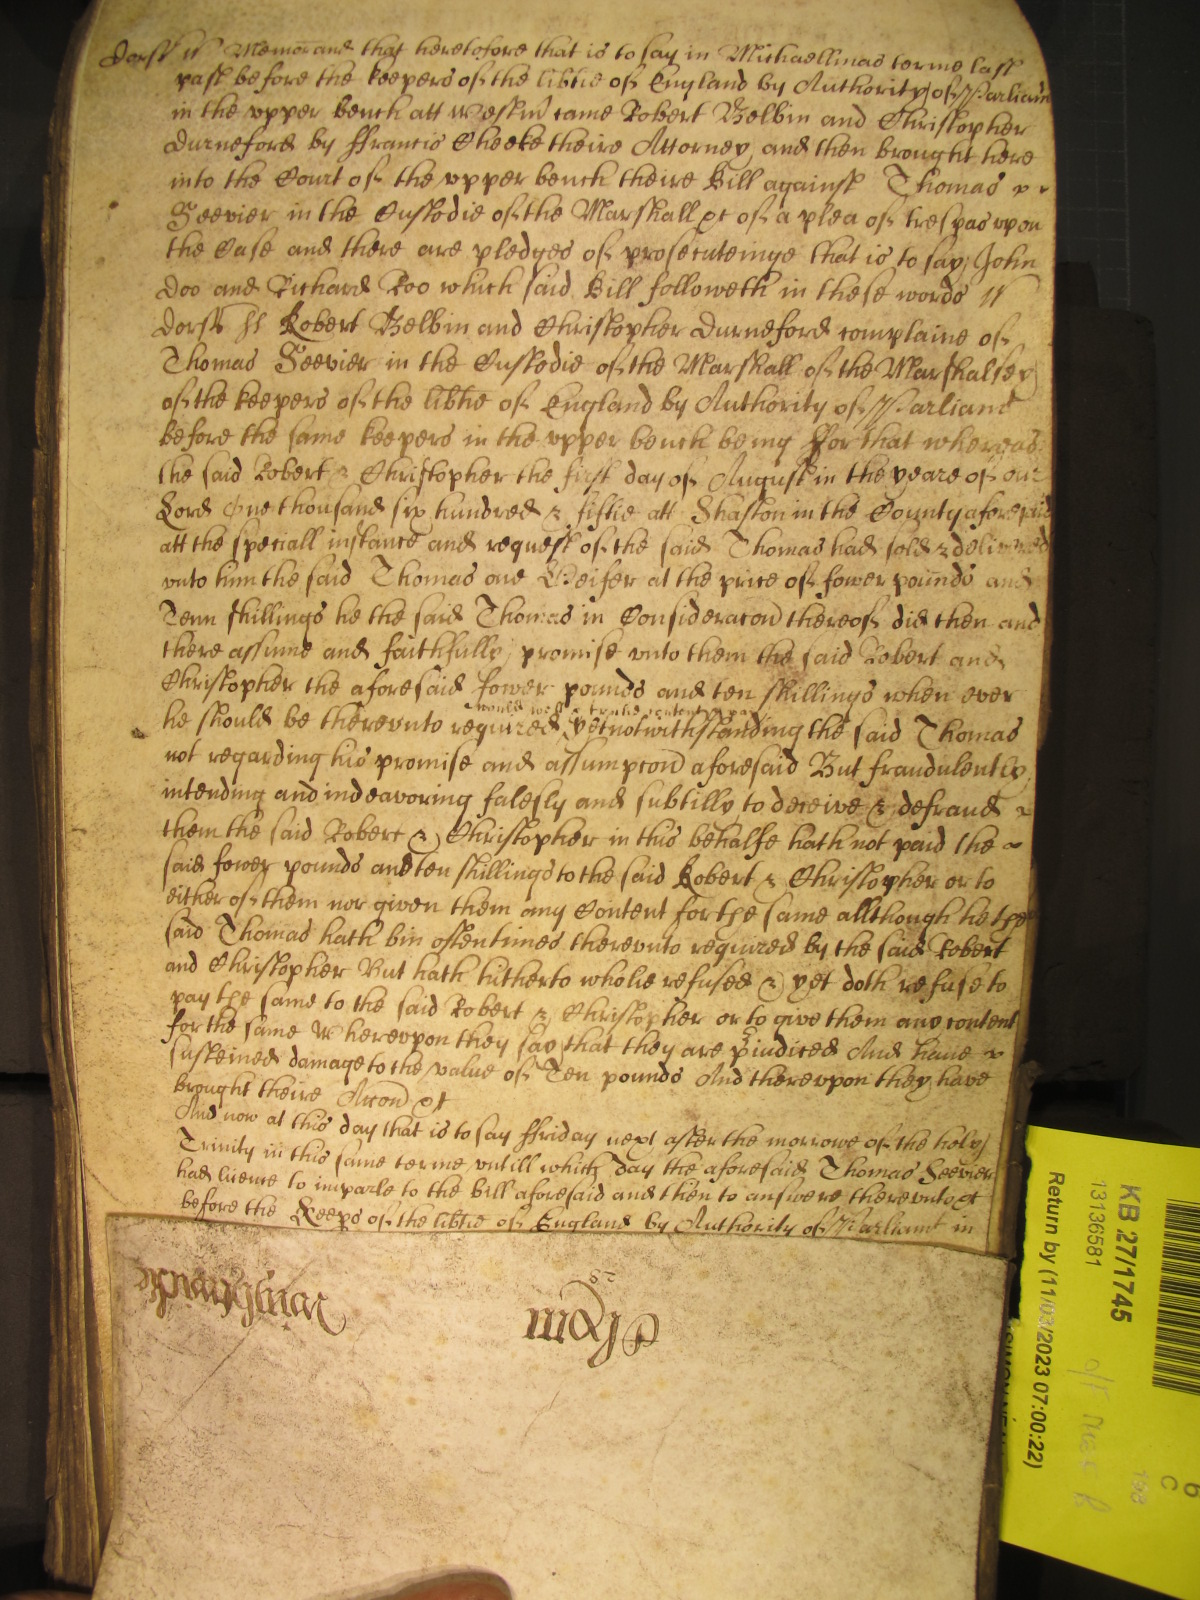 Dorst ss Memorand that heretofore that is to say in Michaellmas terme last
past before the keepers of the libtie of England by Authority of Parliamt
in the upper bench att Westm came Robert Belbin and Christopher
Durneford by ffrancis Cheeke theire Attorney and then brought here
into the Court of the upper bench theire Bill against Thomas
Seevier in the Custodie of the Marshall &c of a plea of trespas upon
the Case and there are pledges of prosecuteinge that is to say John
Doo and Richard Roo which said Bill followeth in these words ss
Dorst ss Robert Belbin and Christopher Durneford complaine of
Thomas Seevier in the Custodie of the Marshall of the Marshalsey
of the keepers of the libtie of England by Authority of Parliamt
before the same keepers in the upper bench being ffor that whereas
the said Robert & Christopher the first day of August in the yeare of our
Lord One thousand six hundred & fiftie att Shaston in the County aforesaid
att the speciall instance and request of the said Thomas had sold & delivered
unto him the said Thomas one Heifer at the price of fower pounds and
Tenn shillings he the said Thomas in Consideracon thereof did then and
there assume and faithfully promise unto them the said Robert and
Christopher the aforesaid fower pounds and ten shillings when ever
would well & trulie content & pay
he should be thereunto required yet notwithstanding the said Thomas
not regarding his promise and assumpcon aforesaid But fraudulently
intending and indeavoring falesly and subtilly to deceive & defraud
them the said Robert & Christopher in this behalfe hath not paid the
said fower pounds and ten shillings to the said Robert & Christopher or to
either of them nor given them any Content for the same allthough he the
said Thomas hath bin oftentimes thereunto required by the said Robert
and Christopher But hath hitherto wholie refused & yet doth refuse to
pay the same to the said Robert & Christopher or to give them any content
for the same Whereupon they say that they are piudiced And have
susteined damage to the value of Ten pounds And thereupon they have
brought theire Accon &c
And now at this day that is to say ffriday next after the morrowe of the holy
Trinity in this same terme untill which day the aforesaid Thomas Seevier
had licence to imparle to the bill aforesaid and then to answere thereunto &c
before the Keeps of the libtie of England by Authority of Parliamt in
KB 27/1745
13136581
Return by (11/03/2023 07:00:22)